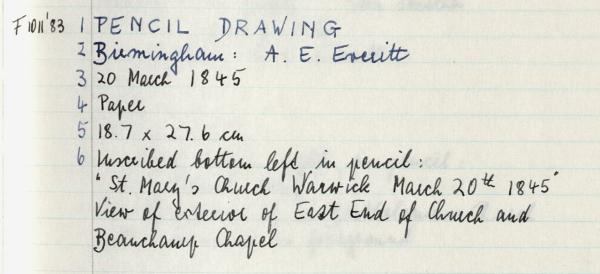 F1011'83 1 PENCIL DRAWING
2 Birmingham: A. E. Everitt
3 20 March 1845
4 Paper
5 18.7 x 27.6 cm
6 Inscribed bottom left in pencil:
"St. Mary's Church Warwick March 20th 1845"
View of exterior of East End of Church and
Beauchamp Chapel